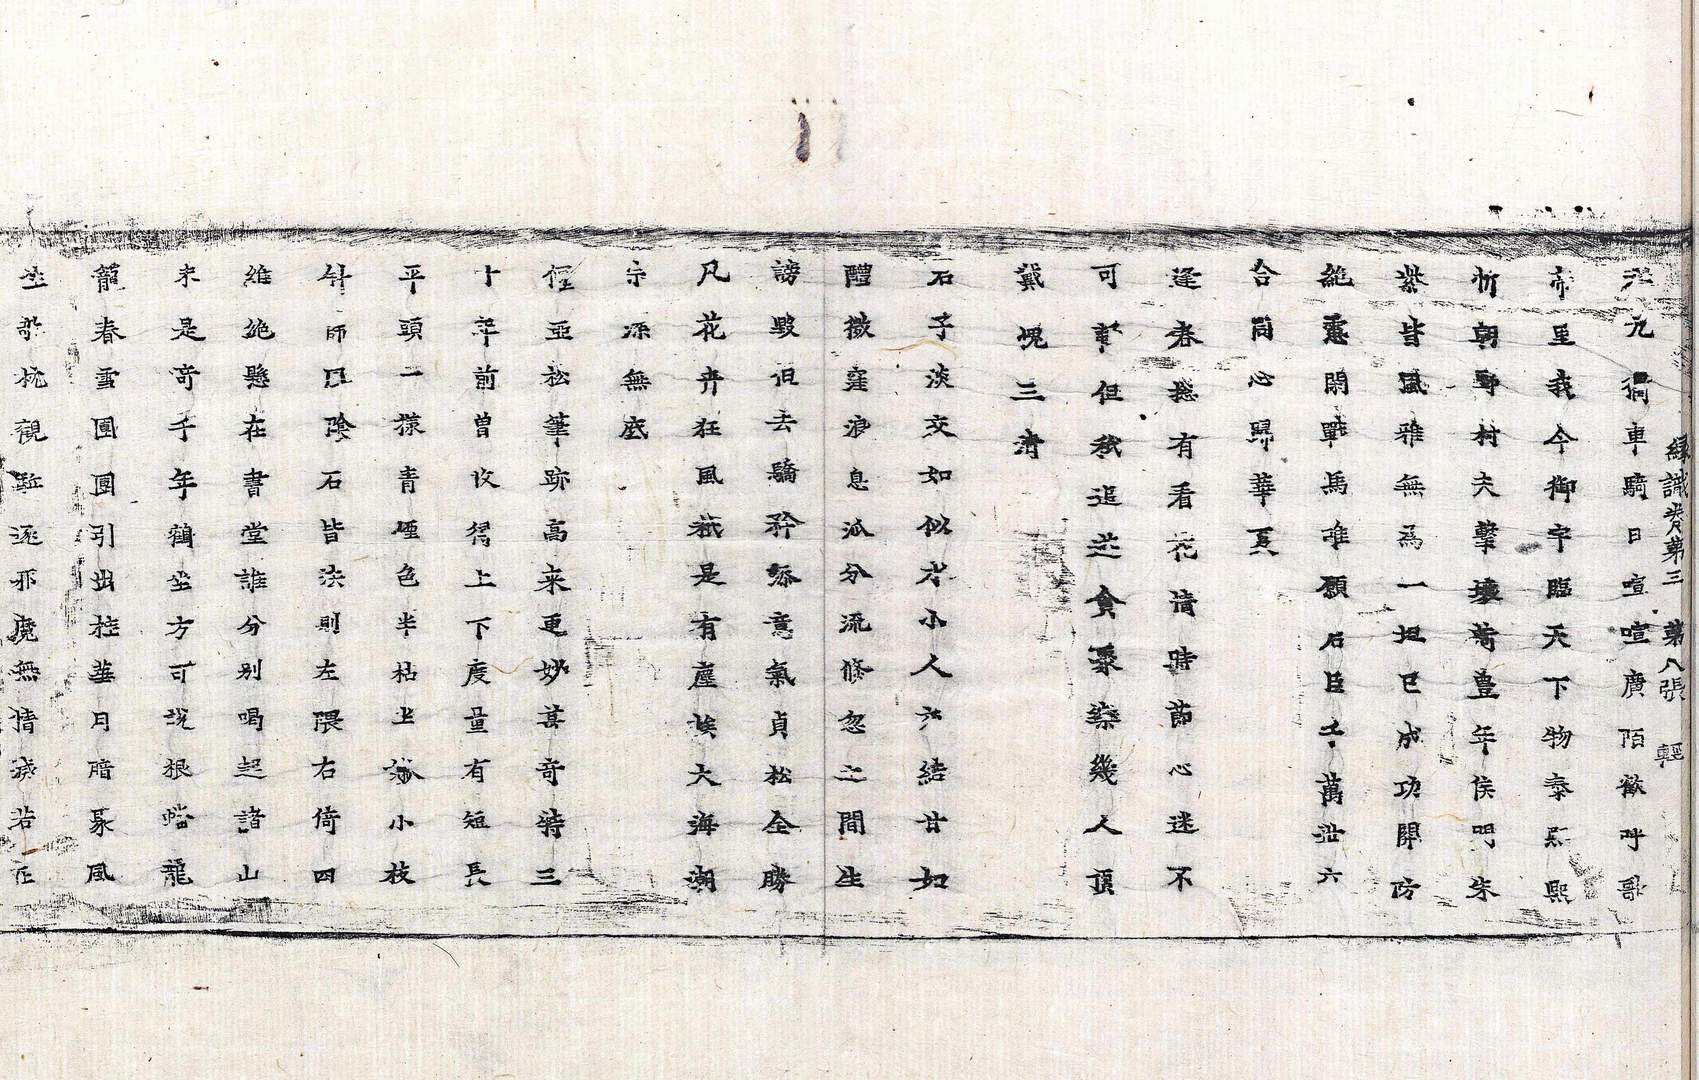 緣識卷第三 第八張 輕
元 車騎日喧喧廣陌歡呼歌
帝里我今御宇臨天下物泰熙熙
忻朝野村夫擊壤荷豊年侯門朱
紫皆風雅無為一坦已成功開防
絶塞閑戰馬唯願君臣千萬世六
合同心歸華夏
逢春揔有看花情時節心迷不
可 但秖追 貪 幾人頂
戴 三清
石子淡交如似水小人 結甘如
醴 浪息 分流倏忽之間生
謗毀但去驕矜 意氣貞松全勝
凡花卉狂風秖是有塵埃大海潮
宗深無底
怪 松筆跡高來更妙甚奇特三
十年前曾收得上下度量有短長
平頭一様青煙色半枯 小枝
師 陰石皆法則左隈右倚四
維絶懸在書堂誰分別喝起諸山
未是奇千年鶴坐方可說根蟠龍
籠春雪團團圓引出桂華月暗 風
坐 枕觀 逐邪魔無情 若在